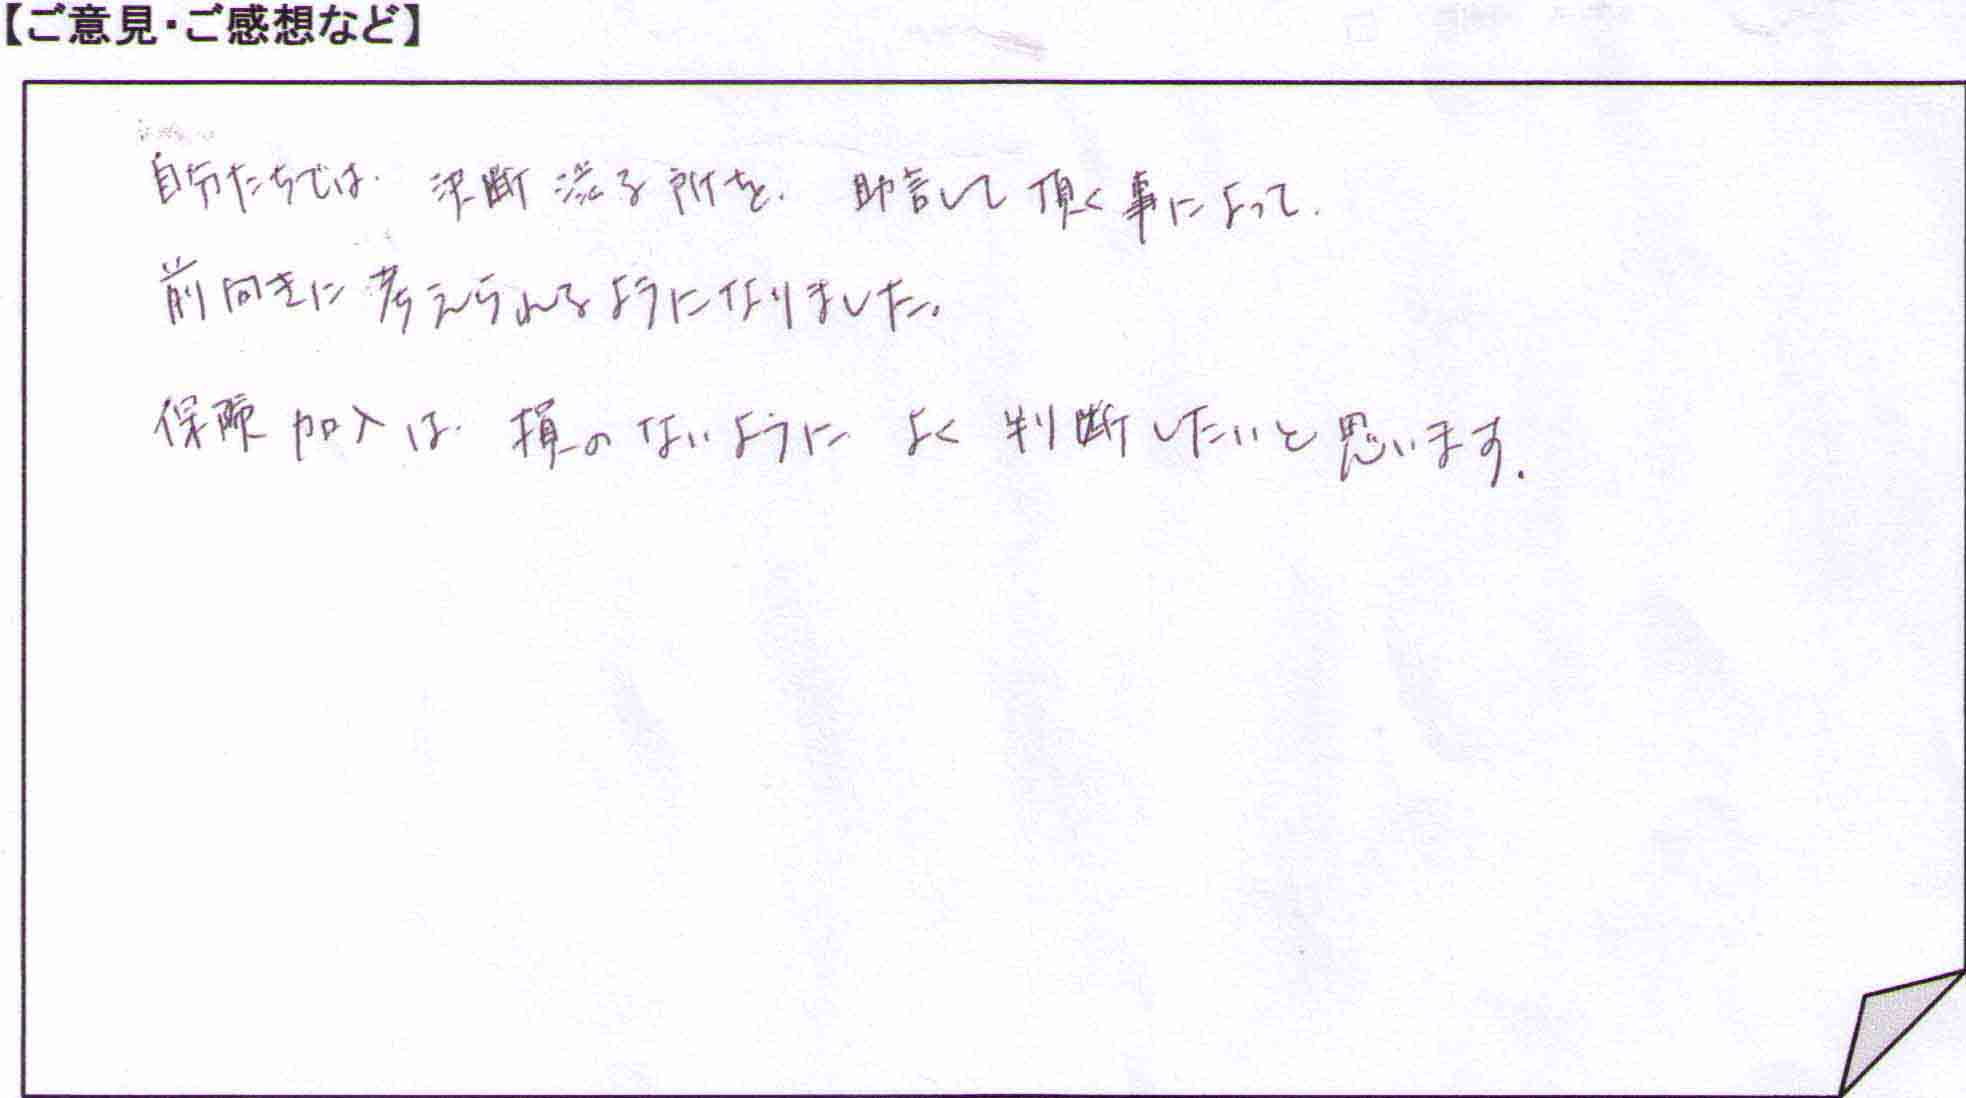 【ご意見・ご感想など】
自分たちでは、決断渋る所を、助言して頂く事によって、
前向きに考えられるようになりました。
保険加入は、損のないように よく判断したいと思います。